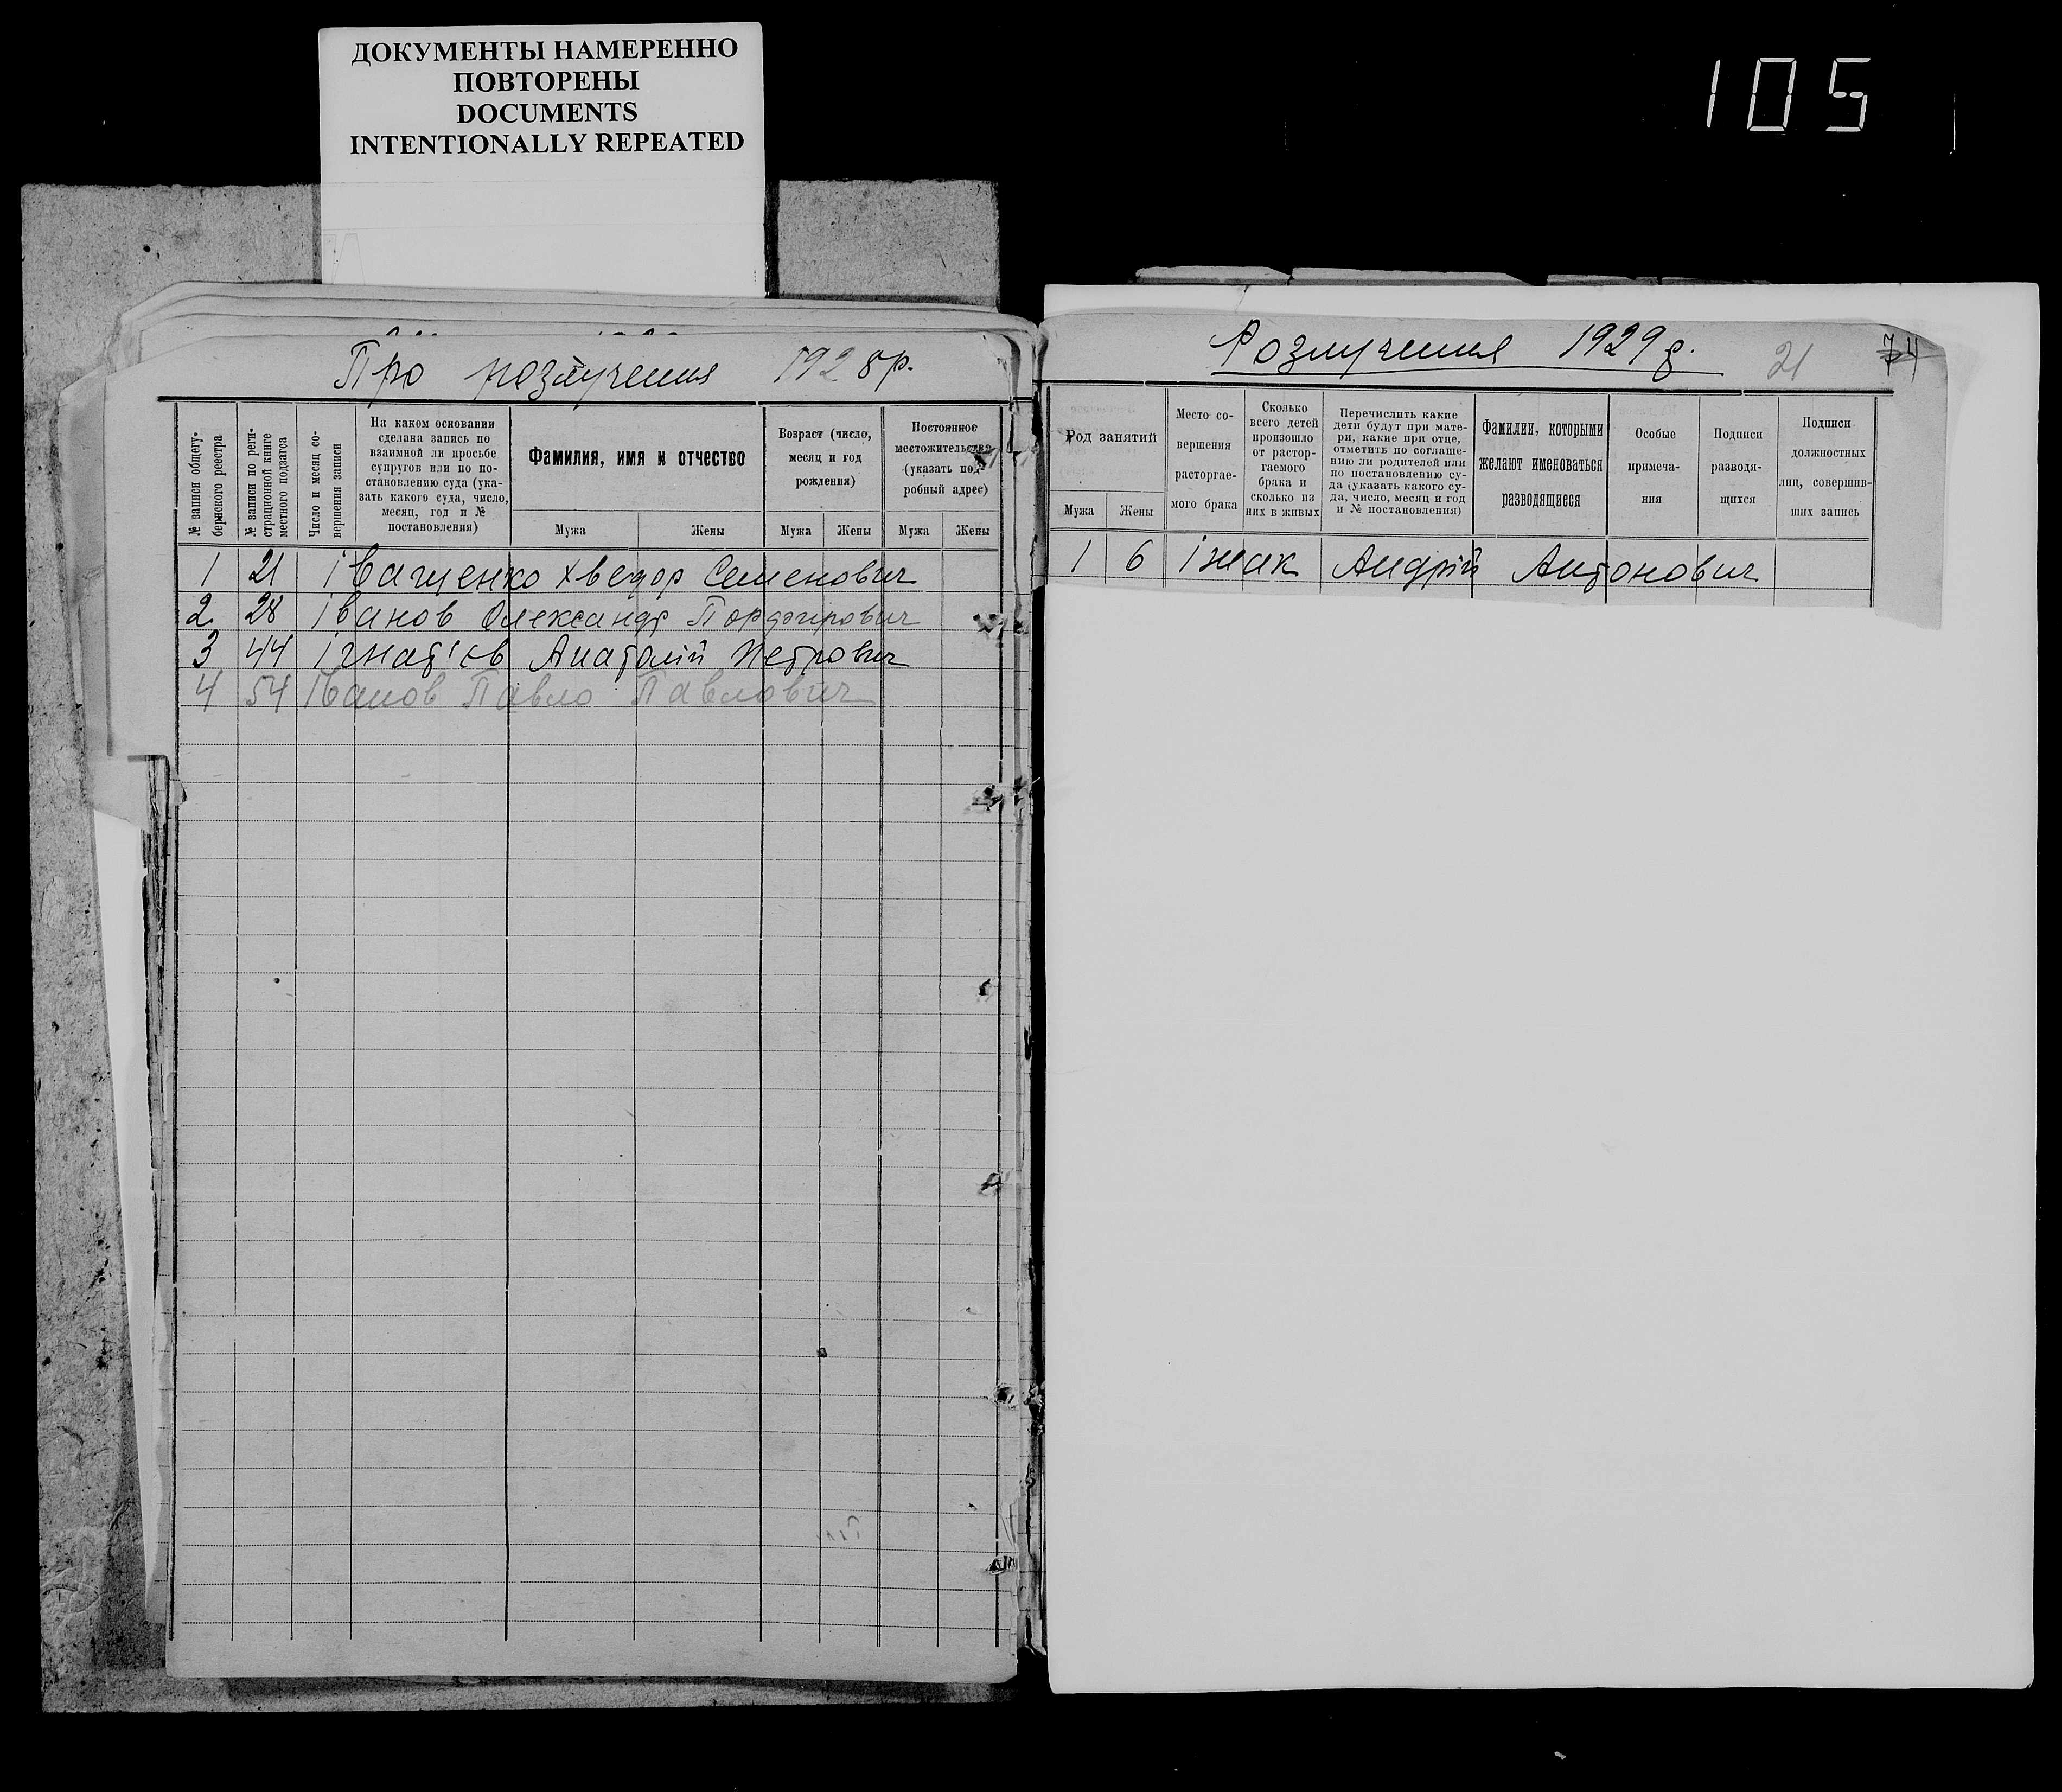 ДОКУМЕНТЫ НАМЕРЕННО
ПОВТОРЕНЫ
DOCUMENTS
INTENTIONALLY REPEATED
105
Про розлучення 1928 р.
№ записи общегу-
бернского реестра
№ записи по реги-
страционной книге
местного подзагса
Число и месяц со-
вершения записи
На каком основании
сделана запись по
взаимной ли просьбе
супругов или по по-
становлению суда (ука-
зать какого суда, число,
месяц, год и №
постановления)
Фамилия, имя и отчество
Мужа Жены
Возраст (число,
месяц и год
рождения)
Мужа Жены
Постоянное
местожительство
(указать под-
робный адрес)
Мужа Жены
1 21 Іващенко Хведор Семенович
2 28 Іванов Олександр Порфирович
3 44 Ігнат'єв Анатолій Петрович
4 54 Іванов Павло Павлович
Розлучення 1929 р. 21 74
Род занятий
Мужа Жены
Место со-
вершения
расторгае-
мого брака
Сколько
всего детей
произошло
от растор-
гаемого
брака и
сколько из
них в живых
Перечислить какие
дети будут при мате-
ри, какие при отце,
отметить по соглаше-
нию ли родителей или
по постановлению су-
да (указать какого су-
да, число, месяц и год
и № постановления)
Фамилии, которыми
желают именоваться
разводящиеся
Особые
примеча-
ния
Подписи
разводя-
щихся
Подписи
должностных
лиц, совершив-
ших запись
1 6 Іжак Андрій Антонович